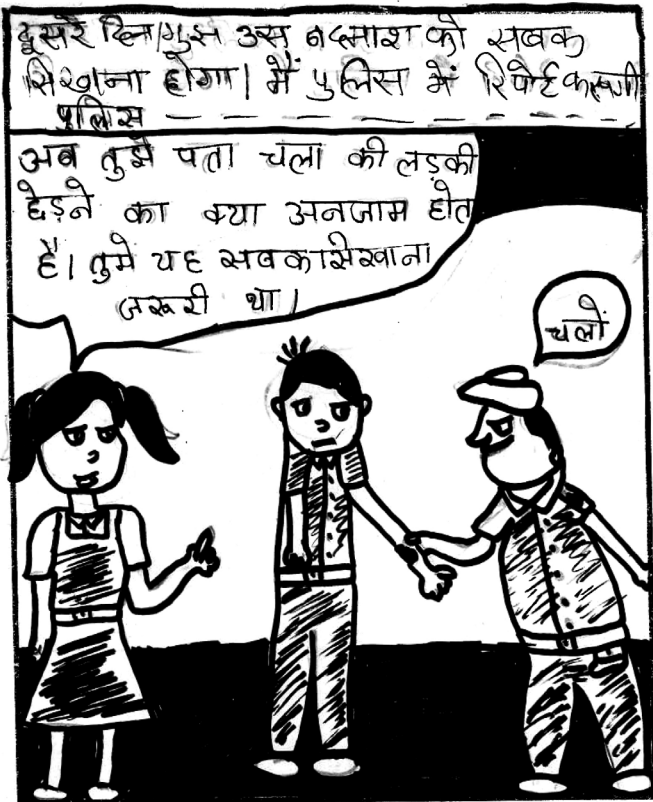 दूसरे दिन। मुझे उस बदमाश को सबक
सिखाना होगा। मैं पुलिस में रिपोर्ट करूंगी
पुलिस — — — — — — — — —
अब तुझे पता चला की लड़की
छेड़ने का क्या अनजाम होत
है। तुमे यह सबक सिखाना
जरूरी था।
चलों